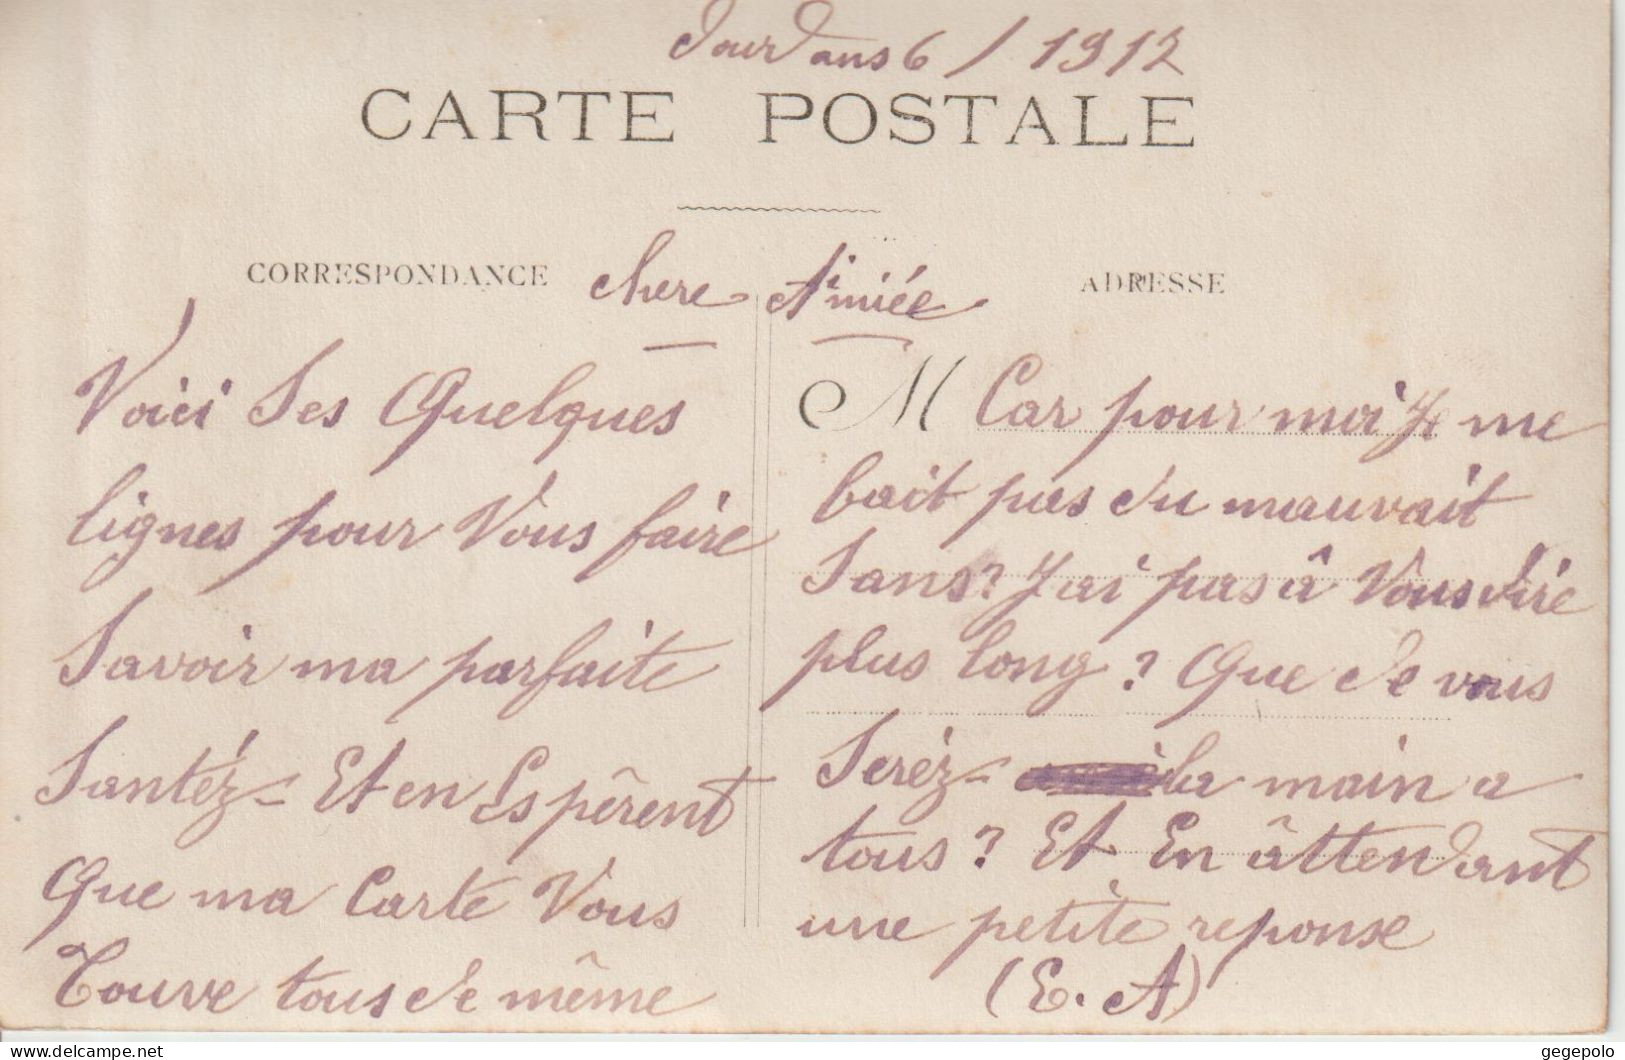 Jourdans 6/1912
CARTE POSTALE
CORRESPONDANCE
chere Aimiée
ADRESSE
Voici Ses Quelques
lignes pour Vous faire
Savoir ma parfaite
Santéz - Et en Espêrent
Que ma Carte Vous
Touve tous de même
M Car pour moi Je me
bait pas du mauvait
Sans? J ai pas â Vous dire
plus long? Que de vous
Seréz - la main a
tous? Et En âttendant
une petite reponse
(E. A)
www.delcampe.net
gegepolo